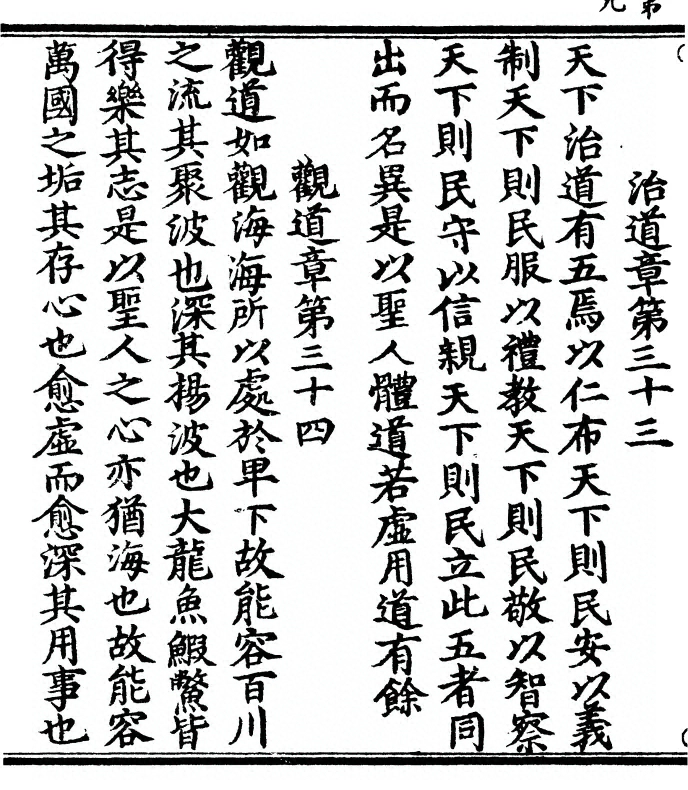 治道章第三十三
天下治道有五焉以仁布天下則民安以義
制天下則民服以禮教天下則民敬以智察
天下則民守以信親天下則民立此五者同
出而名異是以聖人體道若虛用道有餘
觀道章第三十四
觀道如觀海海所以處於卑下故能容百川
之流其聚波也深其揚波也大龍魚鰕鱉皆
得樂其志是以聖人之心亦猶海也故能容
萬國之垢其存心也愈虛而愈深其用事也